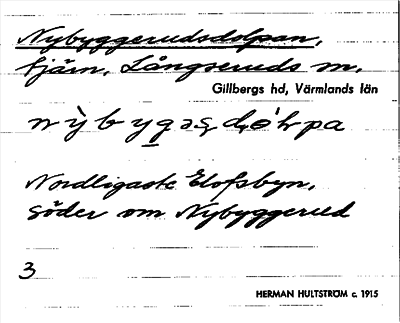 Nybyggerudsdolpan,
tjärn, Långseruds sn,
Gillbergs hd, Värmlands län
Nordligaste Elofsbyn,
söder om Nybyggerud
3
HERMAN HULTSTRÖM c. 1915